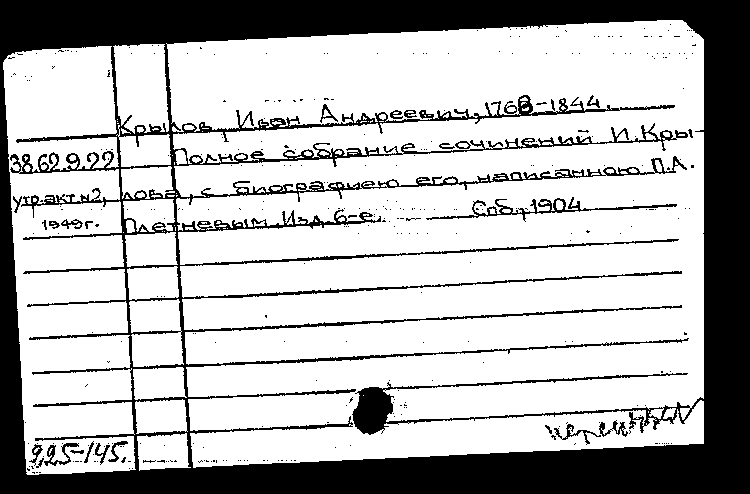 Крылов, Иван Андреевич, 1768-1844.
38.62.9.22 Полное собрание сочинений И.Кры-
утр.акт.№2, лова, с биографиею его, написанною П.А.
1949г. Плетневым. Изд. 6-е. Спб., 1904.
925-145.